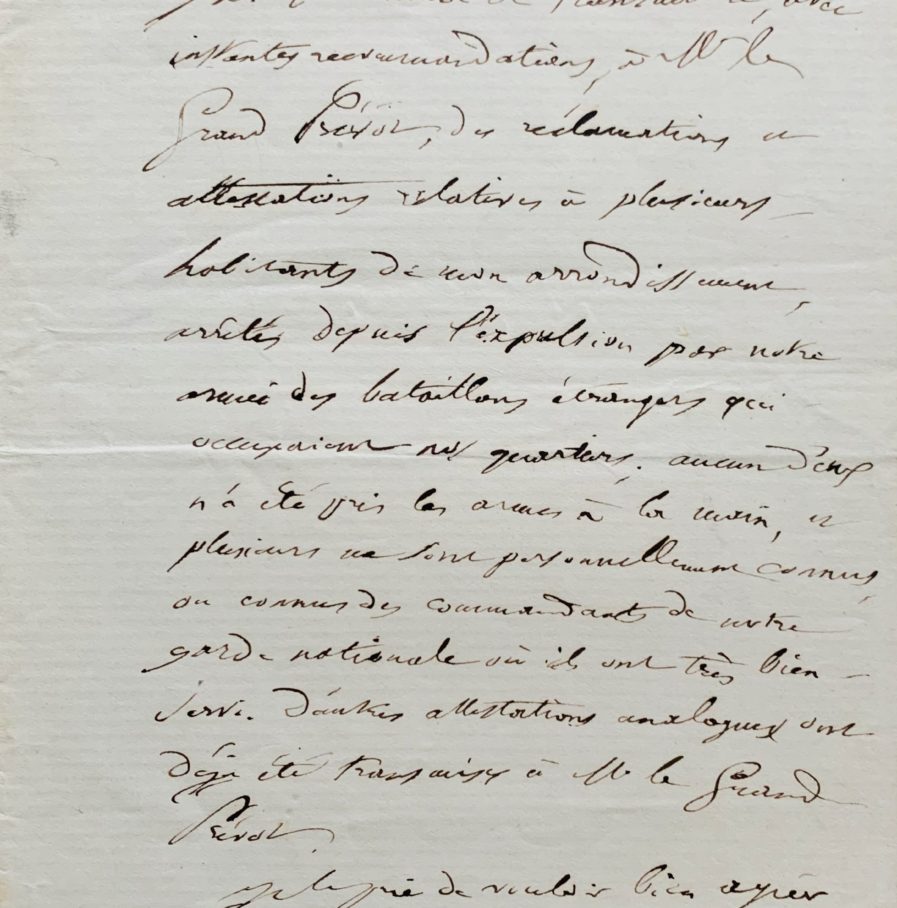 de transmettre, avec
instantes recommandations, à Mr le
Grand Prévôt, des réclamations et
attestations relatives à plusieurs
habitants de mon arrondissement,
arrêtés depuis l'expulsion par notre
armée des bataillons étrangers qui
occupaient nos quartiers. aucun d'eux
n'a été pris les armes à la main, et
plusieurs me sont personnellement connus,
ou connus des commandants de notre
garde nationale où ils ont très bien
servi. D'autres attestations analogues ont
déjà été transmises à Mr le Grand
Prévôt.
Je le prie de vouloir bien agréer